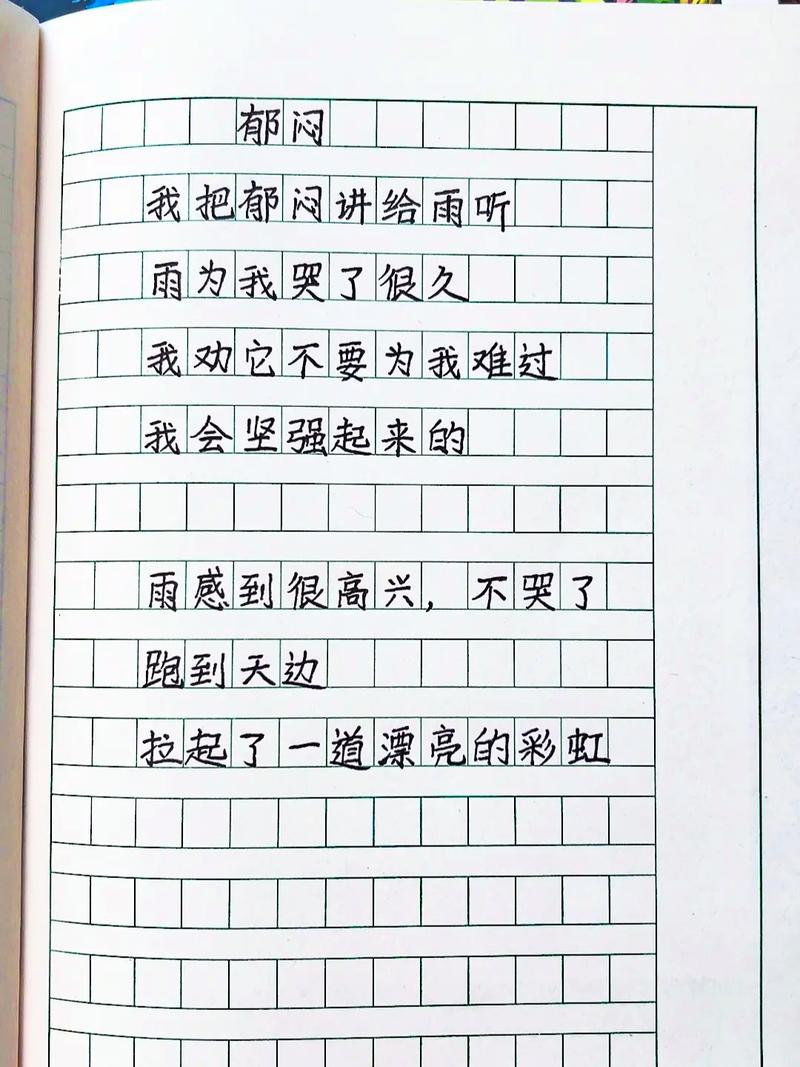 郁闷
我把郁闷讲给雨听
雨为我哭了很久
我劝它不要为我难过
我会坚强起来的
雨感到很高兴，不哭了
跑到天边
拉起了一道漂亮的彩虹